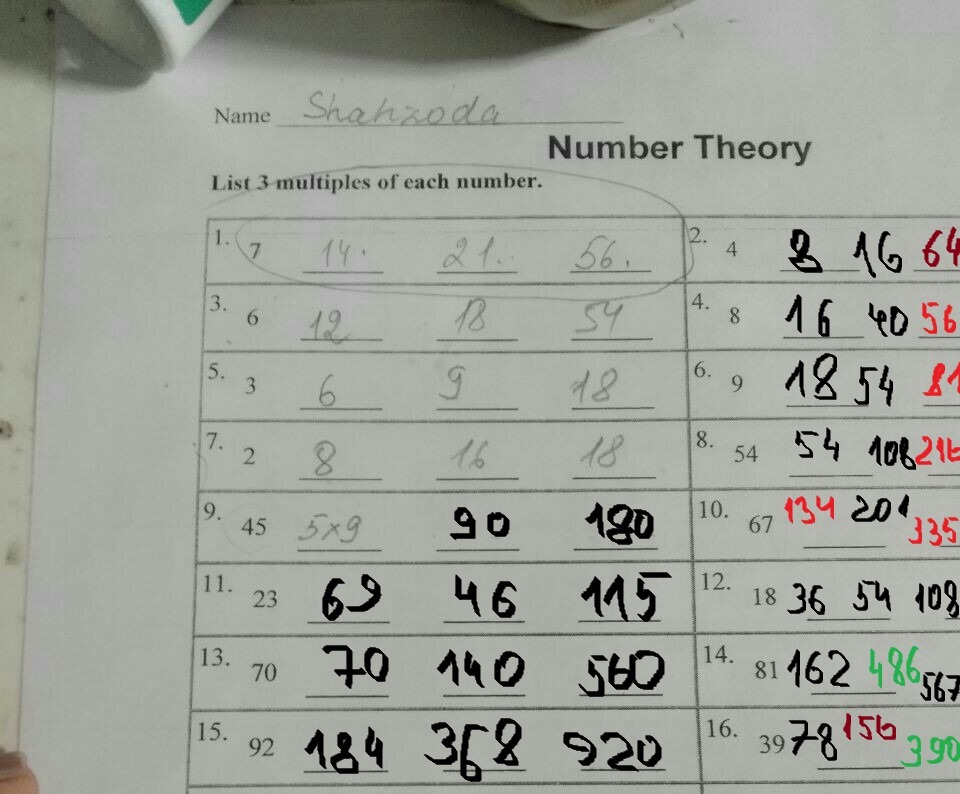 Name Shahzoda
Number Theory
List 3 multiples of each number.
1. 7 14. 21.. 56. 2. 4 8 16 64
3. 6 12 18 54 4. 8 16 40 56
5. 3 6 9 18 6. 9 18 54 81
7. 2 8 16 18 8. 54 54 108 216
9. 45 5×9 90 180 10. 67 134 201 335
11. 23 69 46 115 12. 18 36 54 108
13. 70 70 140 560 14. 81 162 486 567
15. 92 184 368 920 16. 39 78 156 390